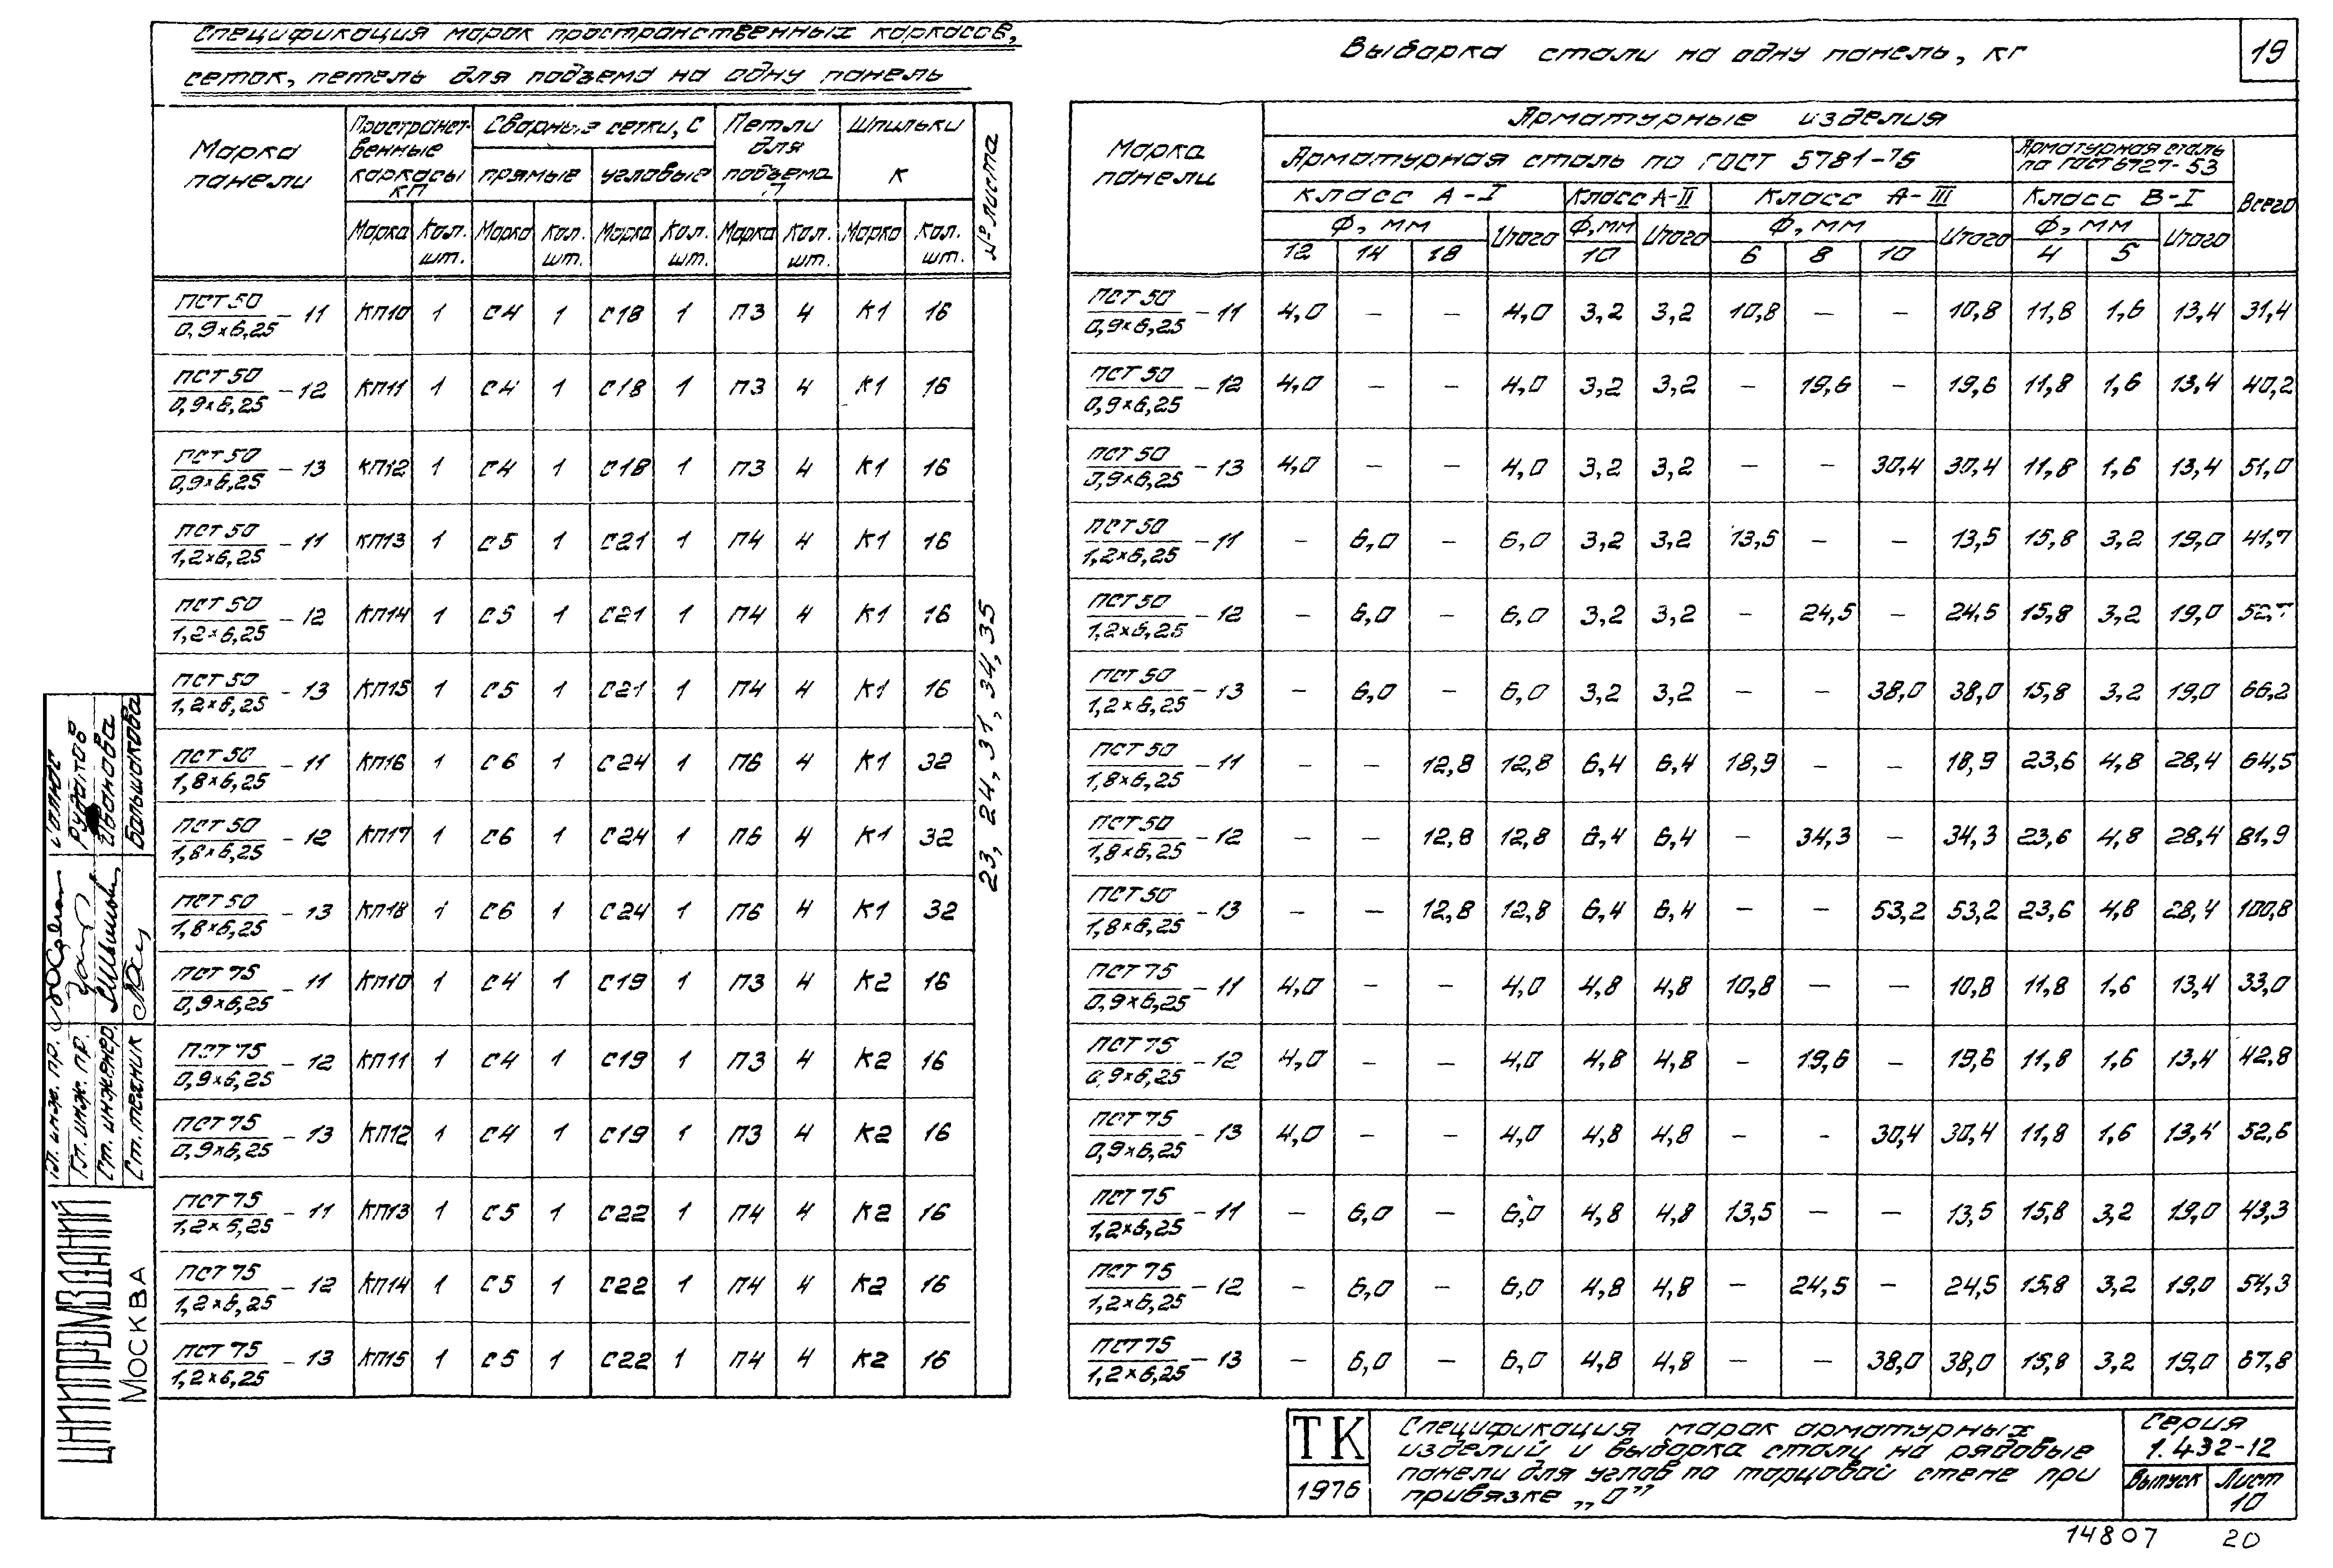 Спецификация марок пространственных каркасов,
сеток, петель для подъема на одну панель
Выборка стали на одну панель, кг
19
Марка панели | Пространственные каркасы КП | Сварные сетки, С | Петли для подъема П | Шпильки К | № листа
прямые | угловые
Марка | Кол. шт. | Марка | Кол. шт. | Марка | Кол. шт. | Марка | Кол. шт. | Марка | Кол. шт.
ПСТ 50 / 0,9×6,25 – 11 | КП10 | 1 | С4 | 1 | С18 | 1 | П3 | 4 | К1 | 16
ПСТ 50 / 0,9×6,25 – 12 | КП11 | 1 | С4 | 1 | С18 | 1 | П3 | 4 | К1 | 16
ПСТ 50 / 0,9×6,25 – 13 | КП12 | 1 | С4 | 1 | С18 | 1 | П3 | 4 | К1 | 16
ПСТ 50 / 1,2×6,25 – 11 | КП13 | 1 | С5 | 1 | С21 | 1 | П4 | 4 | К1 | 16
ПСТ 50 / 1,2×6,25 – 12 | КП14 | 1 | С5 | 1 | С21 | 1 | П4 | 4 | К1 | 16
ПСТ 50 / 1,2×6,25 – 13 | КП15 | 1 | С5 | 1 | С21 | 1 | П4 | 4 | К1 | 16
ПСТ 50 / 1,8×6,25 – 11 | КП16 | 1 | С6 | 1 | С24 | 1 | П6 | 4 | К1 | 32
ПСТ 50 / 1,8×6,25 – 12 | КП17 | 1 | С6 | 1 | С24 | 1 | П6 | 4 | К1 | 32
ПСТ 50 / 1,8×6,25 – 13 | КП18 | 1 | С6 | 1 | С24 | 1 | П6 | 4 | К1 | 32
ПСТ 75 / 0,9×6,25 – 11 | КП10 | 1 | С4 | 1 | С19 | 1 | П3 | 4 | К2 | 16
ПСТ 75 / 0,9×6,25 – 12 | КП11 | 1 | С4 | 1 | С19 | 1 | П3 | 4 | К2 | 16
ПСТ 75 / 0,9×6,25 – 13 | КП12 | 1 | С4 | 1 | С19 | 1 | П3 | 4 | К2 | 16
ПСТ 75 / 1,2×6,25 – 11 | КП13 | 1 | С5 | 1 | С22 | 1 | П4 | 4 | К2 | 16
ПСТ 75 / 1,2×6,25 – 12 | КП14 | 1 | С5 | 1 | С22 | 1 | П4 | 4 | К2 | 16
ПСТ 75 / 1,2×6,25 – 13 | КП15 | 1 | С5 | 1 | С22 | 1 | П4 | 4 | К2 | 16
23, 24, 31, 34, 35
Марка панели | Арматурные изделия | Всего
Арматурная сталь по ГОСТ 5781-75 | Арматурная сталь по ГОСТ 6727-53
Класс А-I | Класс А-II | Класс А-III | Класс В-I
Ф, мм | Итого | Ф, мм | Итого | Ф, мм | Итого | Ф, мм | Итого
12 | 14 | 18 | 10 | 6 | 8 | 10 | 4 | 5
ПСТ 50 / 0,9×6,25 – 11 | 4,0 | – | – | 4,0 | 3,2 | 3,2 | 10,8 | – | – | 10,8 | 11,8 | 1,6 | 13,4 | 31,4
ПСТ 50 / 0,9×6,25 – 12 | 4,0 | – | – | 4,0 | 3,2 | 3,2 | – | 19,6 | – | 19,6 | 11,8 | 1,6 | 13,4 | 40,2
ПСТ 50 / 0,9×6,25 – 13 | 4,0 | – | – | 4,0 | 3,2 | 3,2 | – | – | 30,4 | 30,4 | 11,8 | 1,6 | 13,4 | 51,0
ПСТ 50 / 1,2×6,25 – 11 | – | 6,0 | – | 6,0 | 3,2 | 3,2 | 13,5 | – | – | 13,5 | 15,8 | 3,2 | 19,0 | 41,7
ПСТ 50 / 1,2×6,25 – 12 | – | 6,0 | – | 6,0 | 3,2 | 3,2 | – | 24,5 | – | 24,5 | 15,8 | 3,2 | 19,0 | 52,7
ПСТ 50 / 1,2×6,25 – 13 | – | 6,0 | – | 6,0 | 3,2 | 3,2 | – | – | 38,0 | 38,0 | 15,8 | 3,2 | 19,0 | 66,2
ПСТ 50 / 1,8×6,25 – 11 | – | – | 12,8 | 12,8 | 6,4 | 6,4 | 18,9 | – | – | 18,9 | 23,6 | 4,8 | 28,4 | 64,5
ПСТ 50 / 1,8×6,25 – 12 | – | – | 12,8 | 12,8 | 6,4 | 6,4 | – | 34,3 | – | 34,3 | 23,6 | 4,8 | 28,4 | 81,9
ПСТ 50 / 1,8×6,25 – 13 | – | – | 12,8 | 12,8 | 6,4 | 6,4 | – | – | 53,2 | 53,2 | 23,6 | 4,8 | 28,4 | 100,8
ПСТ 75 / 0,9×6,25 – 11 | 4,0 | – | – | 4,0 | 4,8 | 4,8 | 10,8 | – | – | 10,8 | 11,8 | 1,6 | 13,4 | 33,0
ПСТ 75 / 0,9×6,25 – 12 | 4,0 | – | – | 4,0 | 4,8 | 4,8 | – | 19,6 | – | 19,6 | 11,8 | 1,6 | 13,4 | 42,8
ПСТ 75 / 0,9×6,25 – 13 | 4,0 | – | – | 4,0 | 4,8 | 4,8 | – | – | 30,4 | 30,4 | 11,8 | 1,6 | 13,4 | 52,6
ПСТ 75 / 1,2×6,25 – 11 | – | 6,0 | – | 6,0 | 4,8 | 4,8 | 13,5 | – | – | 13,5 | 15,8 | 3,2 | 19,0 | 43,3
ПСТ 75 / 1,2×6,25 – 12 | – | 6,0 | – | 6,0 | 4,8 | 4,8 | – | 24,5 | – | 24,5 | 15,8 | 3,2 | 19,0 | 54,3
ПСТ 75 / 1,2×6,25 – 13 | – | 6,0 | – | 6,0 | 4,8 | 4,8 | – | – | 38,0 | 38,0 | 15,8 | 3,2 | 19,0 | 67,8
Гл. инж. пр.
Гл. инж. пр. Рудаков
Ст. инженер Иванова
Ст. техник Большакова
ЦНИИПРОМЗДАНИЙ
МОСКВА
ТК
1976
Спецификация марок арматурных
изделий и выборка стали на рядовые
панели для углов по торцовой стене при
привязке „0”
Серия
1.432-12
Выпуск
Лист
10
14807 20